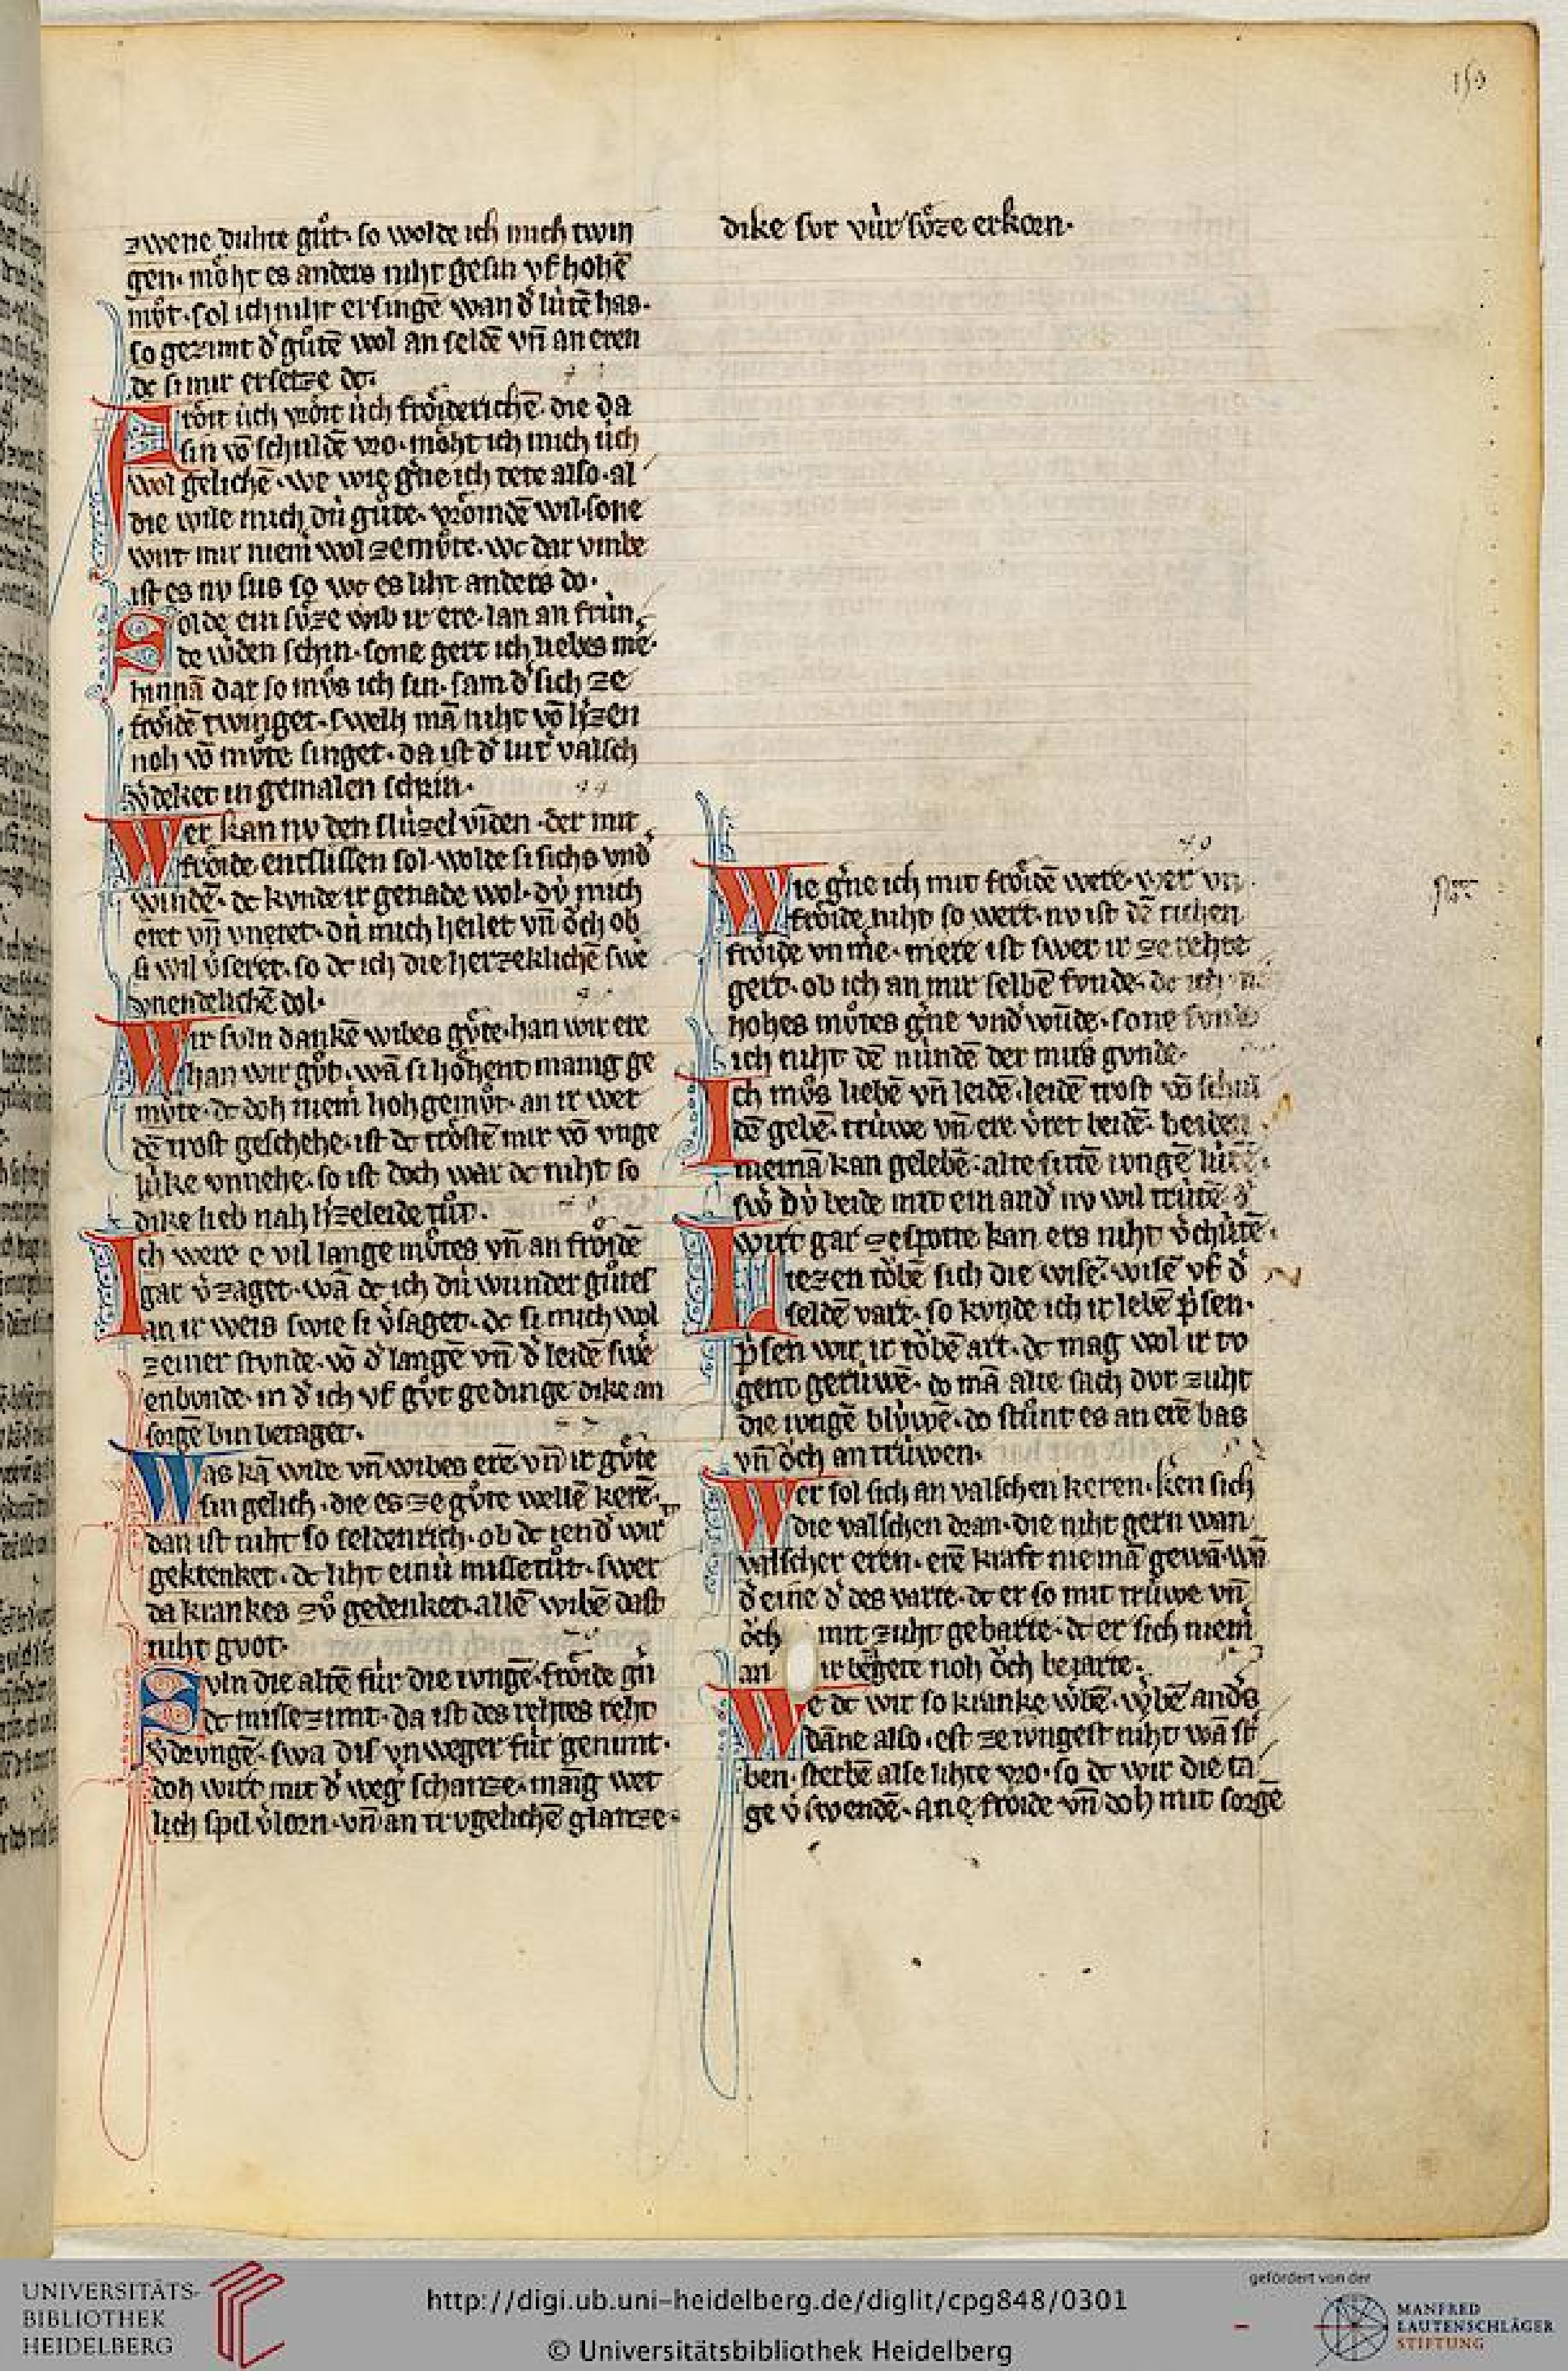 150
zwene duhte gůt· so wolde ich mich twin
gen· mȯht es anders niht gesin vf hohē
mv̊t· sol ich niht ersingē wan d' lu̇tē has·
so gezimt d' gůtē wol an seldē vn̄ an eren
dc si mir ersetze dc·
Frȯit u̇ch vrȯit u̇ch frȯiderichē· die da
sin vō schuldē vro· mȯht ich mich u̇ch
wol gelichē· we wie g'ne ich tete also· al
die wile mich du̇ gůte· vrȯmdē wil· sone
wirt mir niem' wol ze mv̊te· wc dar vmbe
ist es nv sus so wc es liht anders do·
Solde ein sv̊ze wib ir ere· lan an frun
de w'den schin· sone gert ich liebes me·
hinnā dar so mv̊s ich sin· sam d' sich ze
frȯidē twinget· swelh mā niht vō h'zen
noh vō mv̊te singet· da ist d' lut' valsch
v'deket in gemalen schrin·
Wer kan nv den slu̇zel vīden· der mit
frȯide entsliſſen sol· wolde si sichs vnd'
windē· dc kvnde ir genade wol· dv̇ mich
eret vn̄ vneret· du̇ mich heilet vn̄ ȯch ob
si wil v'seret· so dc ich die herzeklichē swe
vnendelichē dol·
Wir suln dankē wibes gv̊te· han wir ere
han wir gv̊t· wā si hȯhent manig ge
mv̊te· dc doh niem' hoh gemv̊t· an ir wer
dē trost geschehe· ist dc trȯstē mir vō vnge
lu̇ke vnnehe· so ist doch war dc niht so
dike lieb nah h'zeleide tůt·
Ich were e vil lange mv̊tes vn̄ an frȯidē
gar v'zaget· wā dc ich du̇ wunder gůtes
an ir weis swie si v'saget· dc si mich wol
zeiner stvnde· vō d' langē vn̄ d' leidē swe
enbvnde· in d' ich vf gv̊t gedinge dike an
sorgē bin betaget·
Was kā wibe vn̄ wibes erē· vn̄ ir gv̊te
sin gelich· die es ze gv̊te wellē kerē·
dan ist niht so seldenrich· ob dc iend' wir
gekrenket· dc liht einu̇ missetůt· swer
da krankes zv̊ gedenket· allē wibē dast
niht gvot·
Svln die altē fu̇r die ivngē· frȯide g'n
dc missezimt· da ist des rehtes reht
v'drvngē· swa dis vnweger fu̇r genimt·
doh wirt mit d' weg' schanze· mānig wet
lich spil v'lorn· vn̄ an trvgelichē glanze·
dike svr vu̇r sv̊ze erkorn·
Wie g'ne ich mit frȯidē were· wer vn
frȯide niht so wert· nv ist dē richen
frȯide vnm'e· mere ist swer ir ze rehte
gert· ob ich an mir selbē fvnde· dc ich
hohes mv̊tes g'ne vnd' wu̇de· sone
ich niht dē nu̇ndē der mirs gvnde·
Ich mv̊s liebē vn̄ leidē· leidē trost vō schul
dē gebē· tru̇we vn̄ ere v'ret beidē· beiden
niemā kan gelebē· alte sittē ivngē lu̇tē·
sw' dv̇ beide mit ein and' nv wil tru̇tē· d'
wirt gar ze spotte kan ers niht v'chu̇tē·
Liezen tȯbē sich die wisē· wisē vf d'
seldē vart· so kvnde ich ir lebē p'sen·
p'sen wir ir tȯbē art· dc mag wol ir tv
gent geru̇wē· do mā alte sach dvr zuht
die ivngē blu̇wē· do stůnt es an erē bas
vn̄ ȯch an tru̇wen·
Wer sol sich an valschen keren· ken sich
die valschen dran· die niht gern wan
valscher eren· erē kraft niemā gewā· wā
d' eine d' des varte· dc er so mit tru̇we vn̄
ȯch mit zuht gebarte· dc er sich niem'
an ir begere noh ȯch beiarte·
We dc wir so kranke w'bē· w'bē and's
danne also· est ze ivngest niht wā st'
ben· sterbē alse lihte vro· so dc wir die ta
ge v'swendē· ane frȯide vn̄ doh mit sorgē
UNIVERSITÄTS-
BIBLIOTHEK
HEIDELBERG
http://digi.ub.uni-heidelberg.de/diglit/cpg848/0301
© Universitätsbibliothek Heidelberg
gefördert von der
MANFRED
LAUTENSCHLÄGER
STIFTUNG